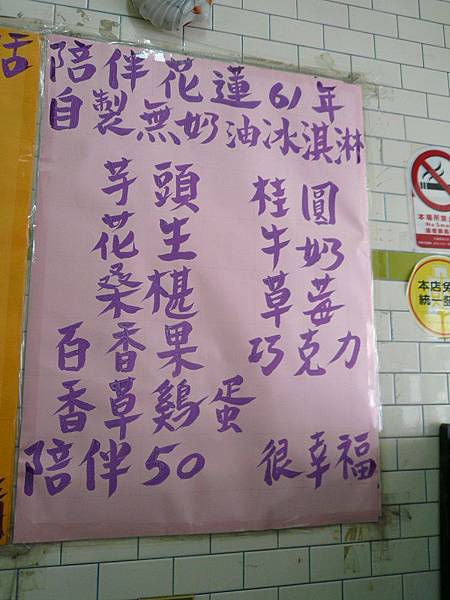 陪伴花蓮61年
自製無奶油冰淇淋
芋頭 桂圓
花生 牛奶
桑椹 草莓
百香果 巧克力
香草雞蛋
陪伴50 很幸福
活
本場所
No Smo
本店免
統一發